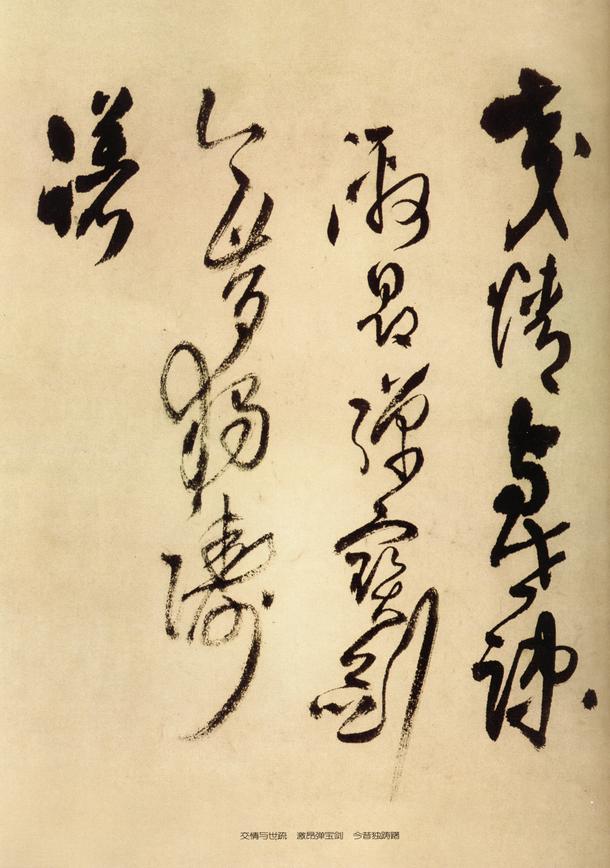 交情与世疎
激昂彈寶劍
今昔獨躊
躇
交情与世疏 激昂弹宝剑 今昔独踌躇